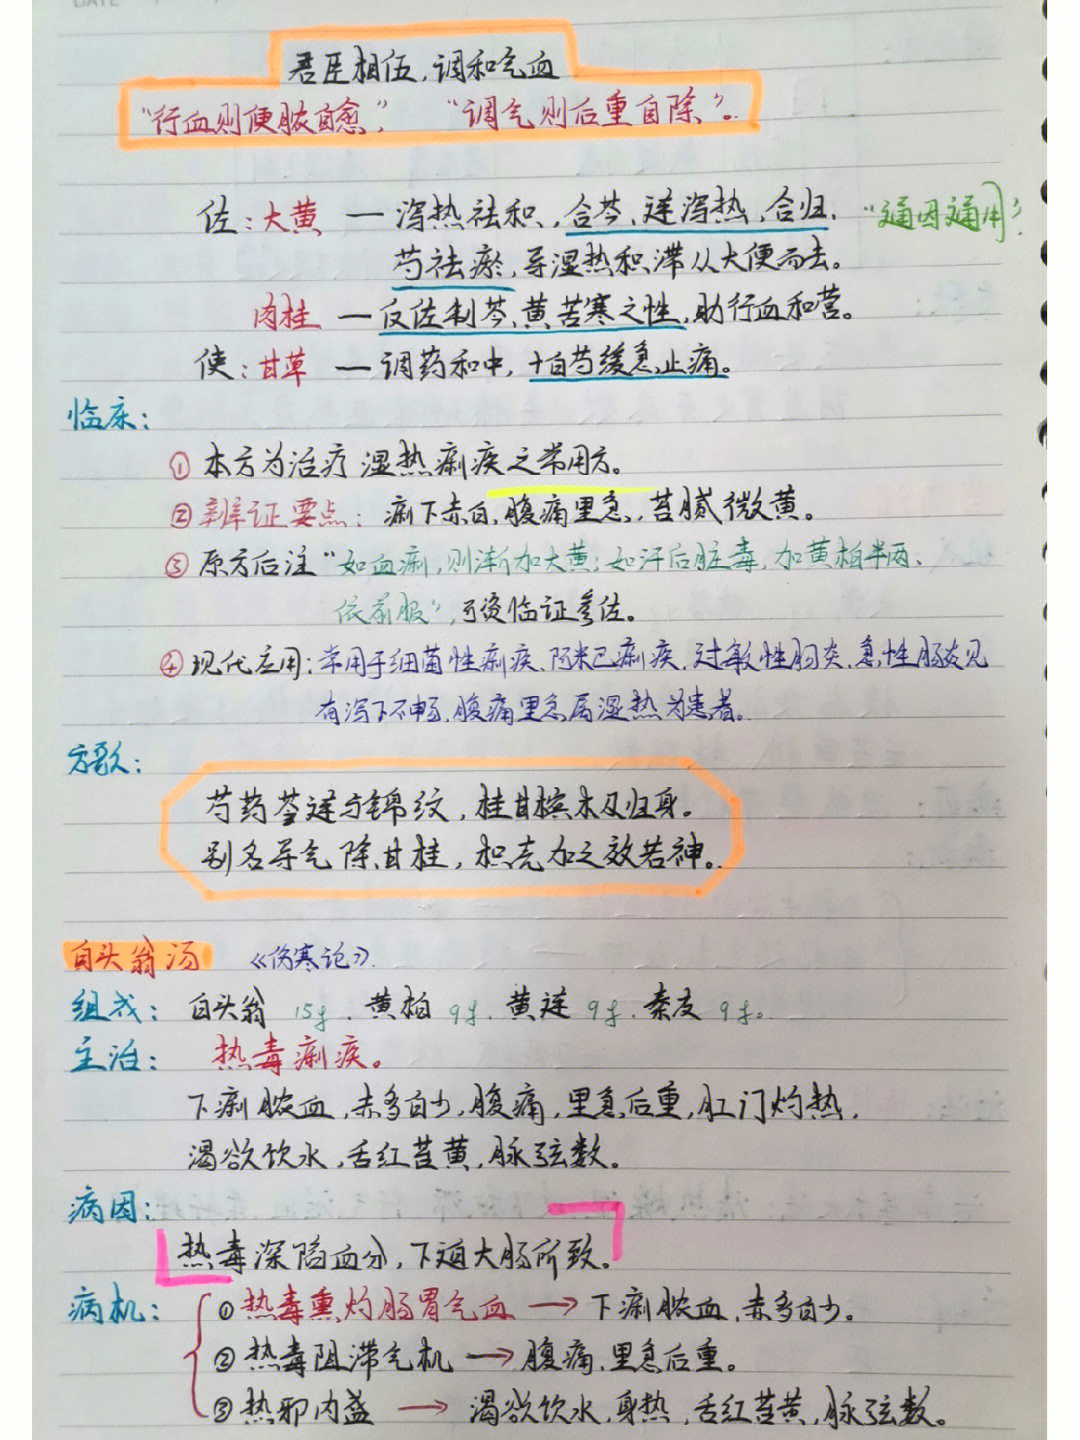 DATE
君臣相伍,调和气血
“行血则便脓自愈”, “调气则后重自除”。
佐:大黄 — 泻热祛积,合芩、连泻热,合归、 “通因通用”
芍祛瘀,导湿热积滞从大便而去。
肉桂 — 反佐制芩、黄苦寒之性,助行血和营。
使:甘草 — 调药和中,+白芍缓急止痛。
临床:
① 本方为治疗 湿热痢疾之常用方。
② 辨证要点: 痢下赤白,腹痛里急,苔腻微黄。
③ 原方后注“如血痢,则渐加大黄;如汗后脏毒,加黄柏半两、
依前服”,可资临证参佐。
④ 现代应用:常用于细菌性痢疾、阿米巴痢疾、过敏性肠炎、急性肠炎见
有泻下不畅,腹痛里急属湿热为患者。
方歌:
芍药芩连与锦纹,桂甘槟木及归身。
别名导气除甘桂,枳壳加之效若神。
白头翁汤 《伤寒论》
组成: 白头翁 15g、黄柏 9g、黄连 9g、秦皮 9g。
主治: 热毒痢疾。
下痢脓血,赤多白少,腹痛,里急后重,肛门灼热,
渴欲饮水,舌红苔黄,脉弦数。
病因:
热毒深陷血分,下迫大肠所致。
病机: ① 热毒熏灼肠胃气血 → 下痢脓血,赤多白少。
② 热毒阻滞气机 → 腹痛、里急后重。
③ 热邪内盛 → 渴欲饮水,身热,舌红苔黄,脉弦数。